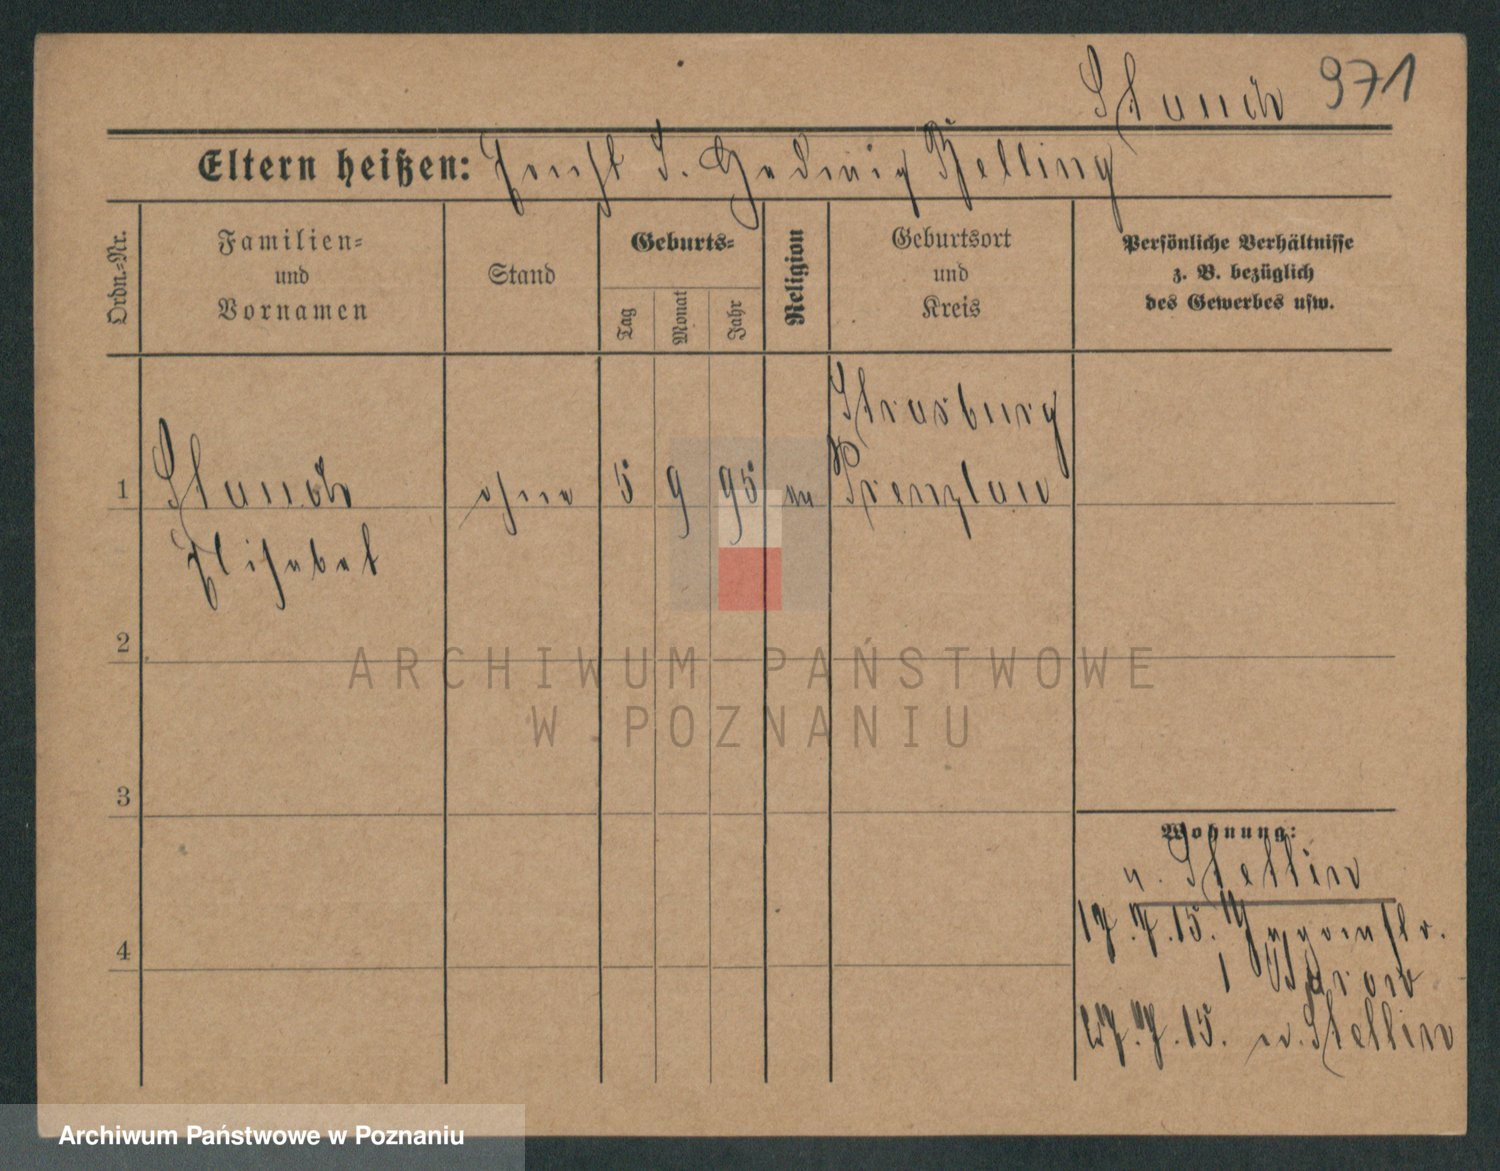 Stauch 971
Eltern heißen: Ernst u. Hedwig Belling
Ordn.=Nr.
Familien=
und
Vornamen
Stand
Geburts=
Tag
Monat
Jahr
Religion
Geburtsort
und
Kreis
Persönliche Verhältnisse
z. B. bezüglich
des Gewerbes usw.
Strasburg
1 Stauch ohne 5 9 95 ev Prenzlau
Elisabet
2
ARCHIWUM PAŃSTWOWE
W POZNANIU
3
Wohnung:
v. Stettin
4
17.7.15.
1
27.7.15. n. Stettin
Archiwum Państwowe w Poznaniu